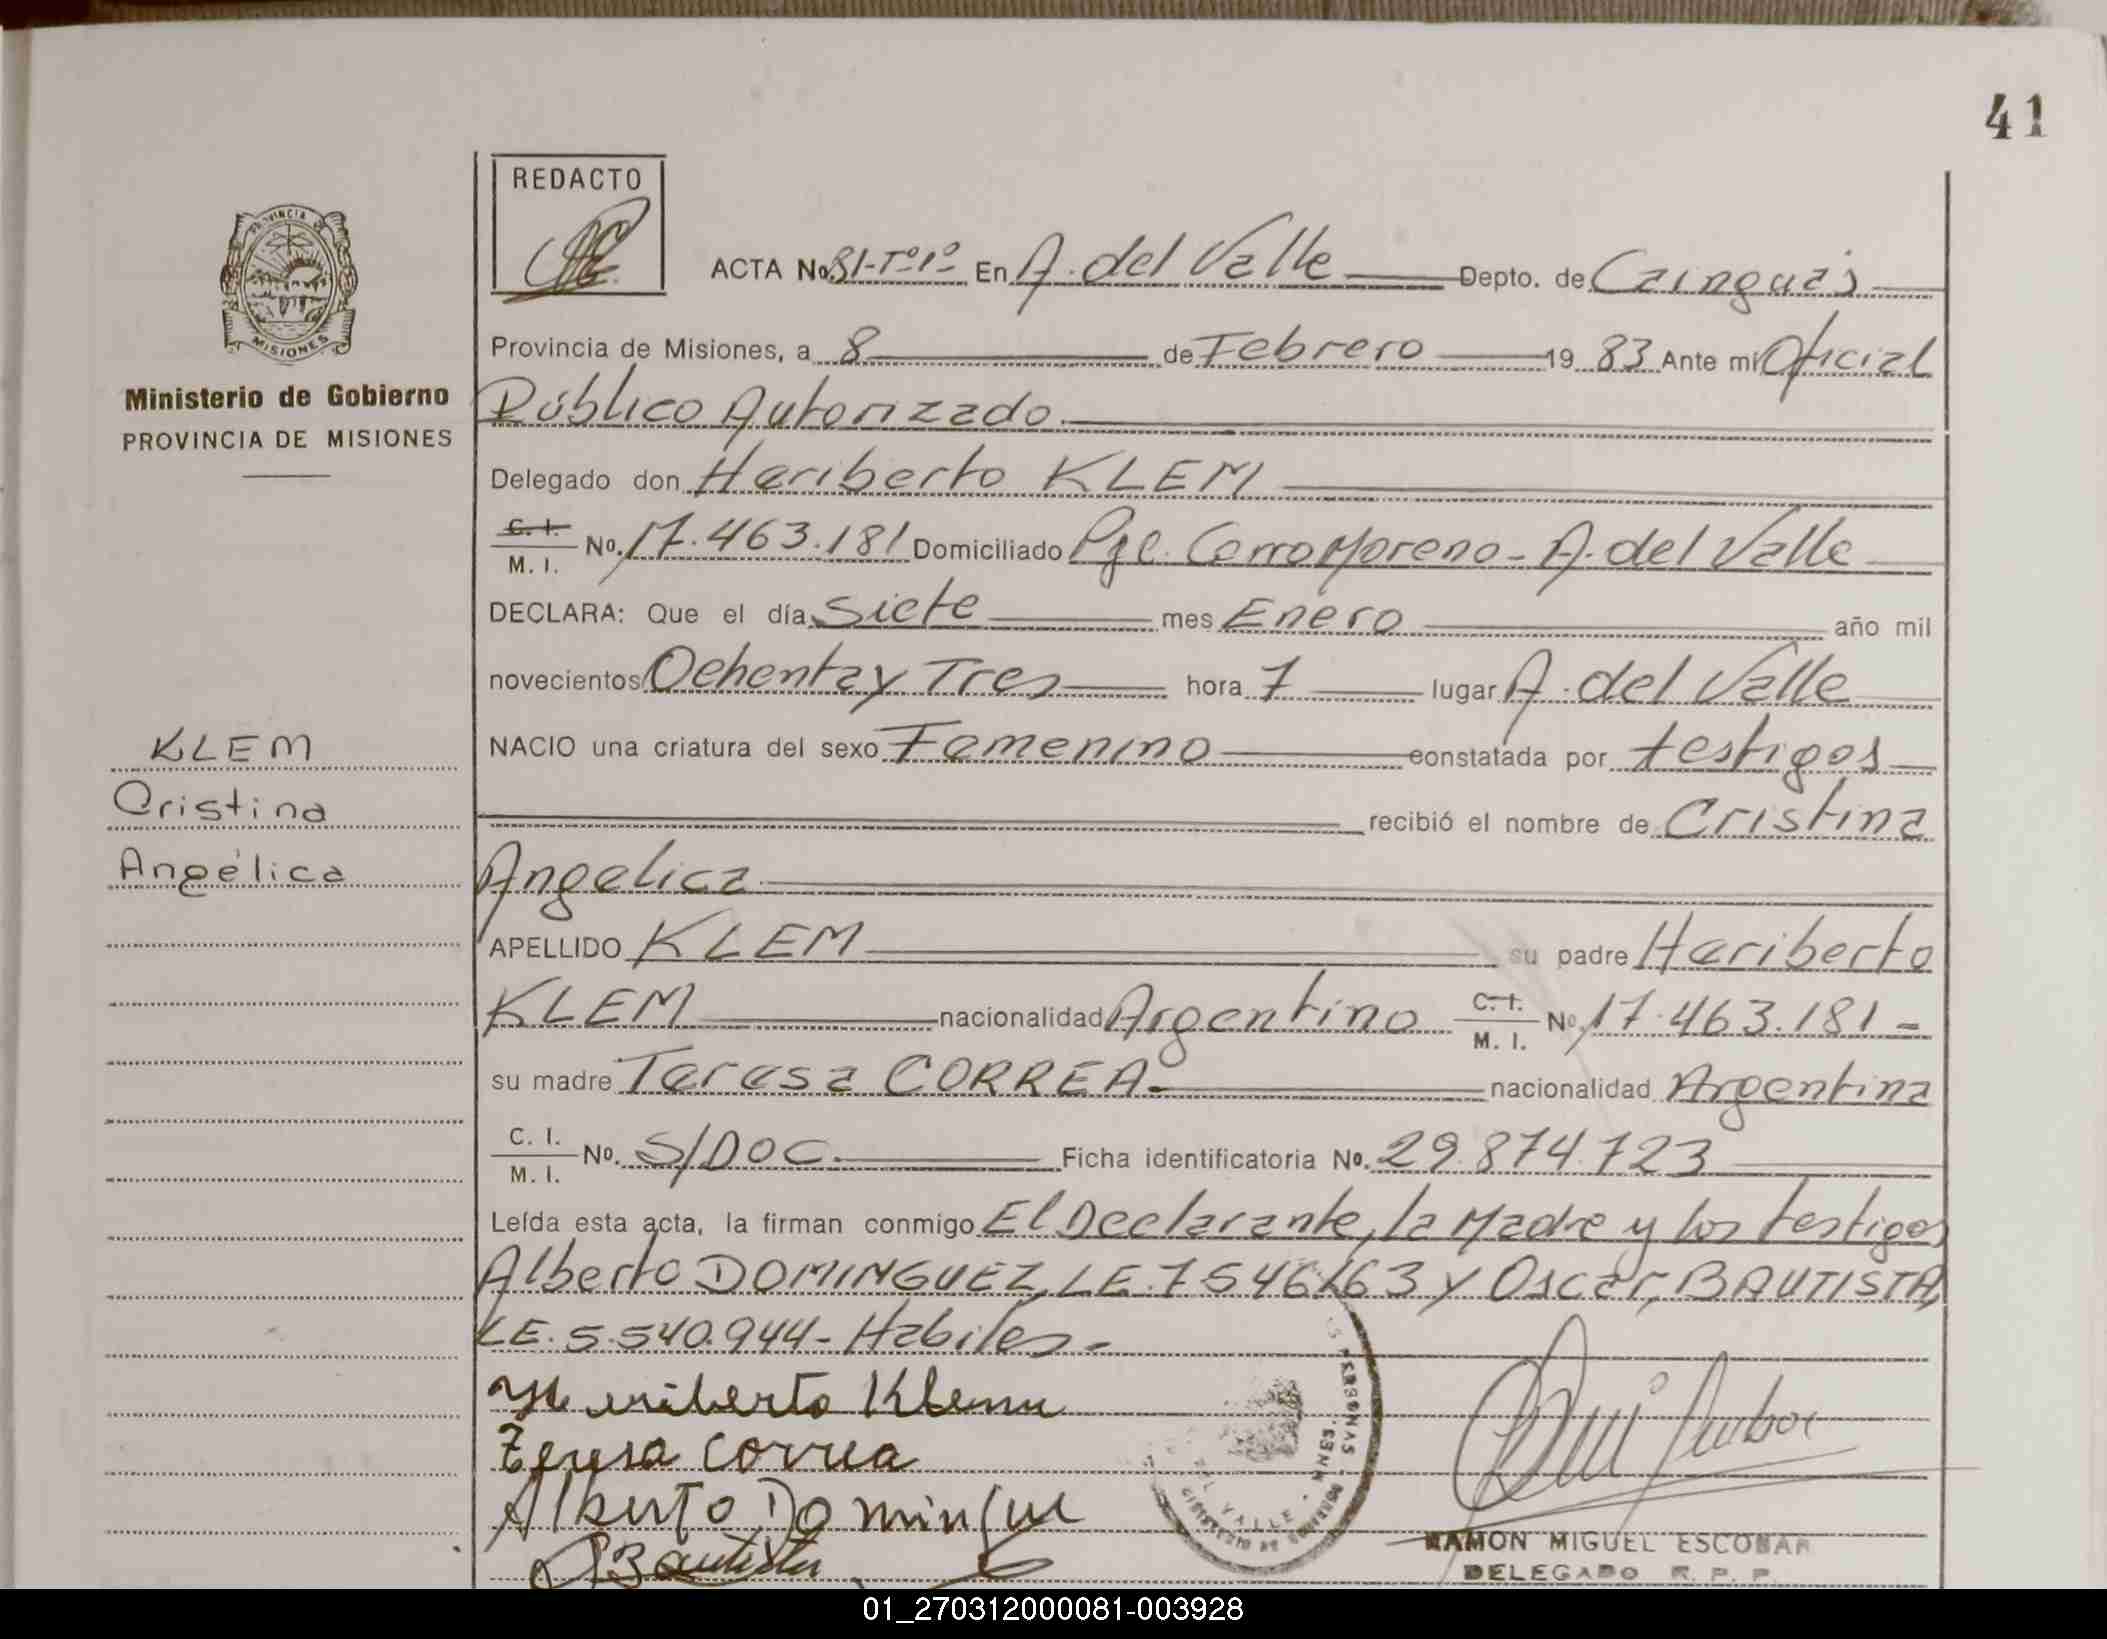 41
REDACTO
ACTA No. 81-Tº1º En A. del Valle Depto. de Cainguás
Provincia de Misiones, a 8 de Febrero 19 83 Ante mi Oficial
Público Autorizado
Ministerio de Gobierno
PROVINCIA DE MISIONES
Delegado don Heriberto KLEM
C. I. M. I. No. 17.463.181 Domiciliado Pje. Cerro Moreno - A. del Valle
DECLARA: Que el día Siete mes Enero año mil
novecientos Ochenta y Tres hora 7 lugar A. del Valle
NACIO una criatura del sexo Femenino constatada por testigos
recibió el nombre de Cristina
Angelica
KLEM
Cristina
Angélica
APELLIDO KLEM su padre Heriberto
KLEM nacionalidad Argentino C. I. M. I. No. 17.463.181 -
su madre Teresa CORREA - nacionalidad Argentina
C. I. M. I. No. S/DOC. Ficha identificatoria No. 29.874.723
Leída esta acta, la firman conmigo El Declarante, la Madre y los testigos
Alberto DOMINGUEZ, LE. 7546163 y Oscar, BAUTISTA,
LE. 5.540.944 - Habiles -
Heriberto Klemm
Teresa Correa
Alberto Domingue
Bautista
PERSONAS
DEL VALLE - MNES.
MINISTERIO DE GOBIERNO
MISIONES
RAMON MIGUEL ESCOBAR
DELEGADO R. P. P.
01_270312000081-003928